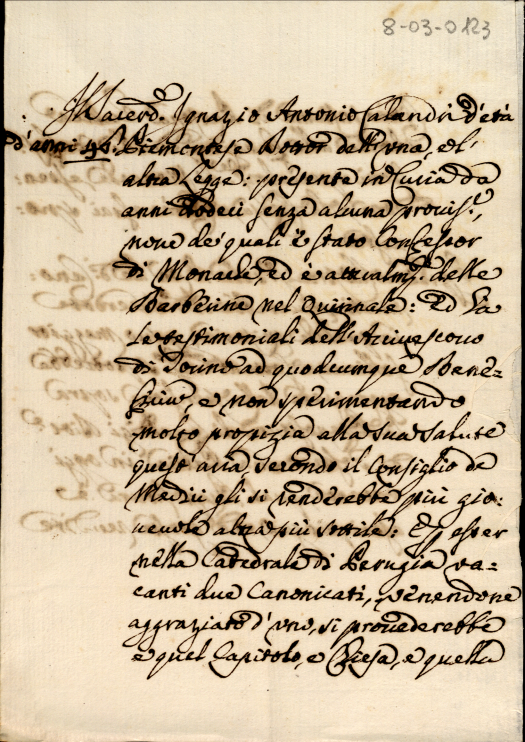 8-03-0123
Il Sacerd. Ignazio Antonio Calandri d'età
d'anni 48. Piemontese Dottor dell'una, e l'
altra Legge: presente in Curia da
anni dodeci senza alcuna provis.e,
nove de' quali è stato Confessor
di Monache, ed è attualm.e delle
Barberine nel Quirinale: Ed ha
le testimoniali dell'Arcivescovo
di Torino ad quodcumque Bene-
ficium, e non sperimentando
molto propizia alla sua salute
quest'aria, secondo il Consiglio de
Medici gli si renderebbe più gio-
vevole altra più sottile: E p esser
nella Catedrale di Perugia va-
canti due Canonicati, venendone
aggraziato d'uno, si provederebbe
e quel Capitolo, e Chiesa, e quella